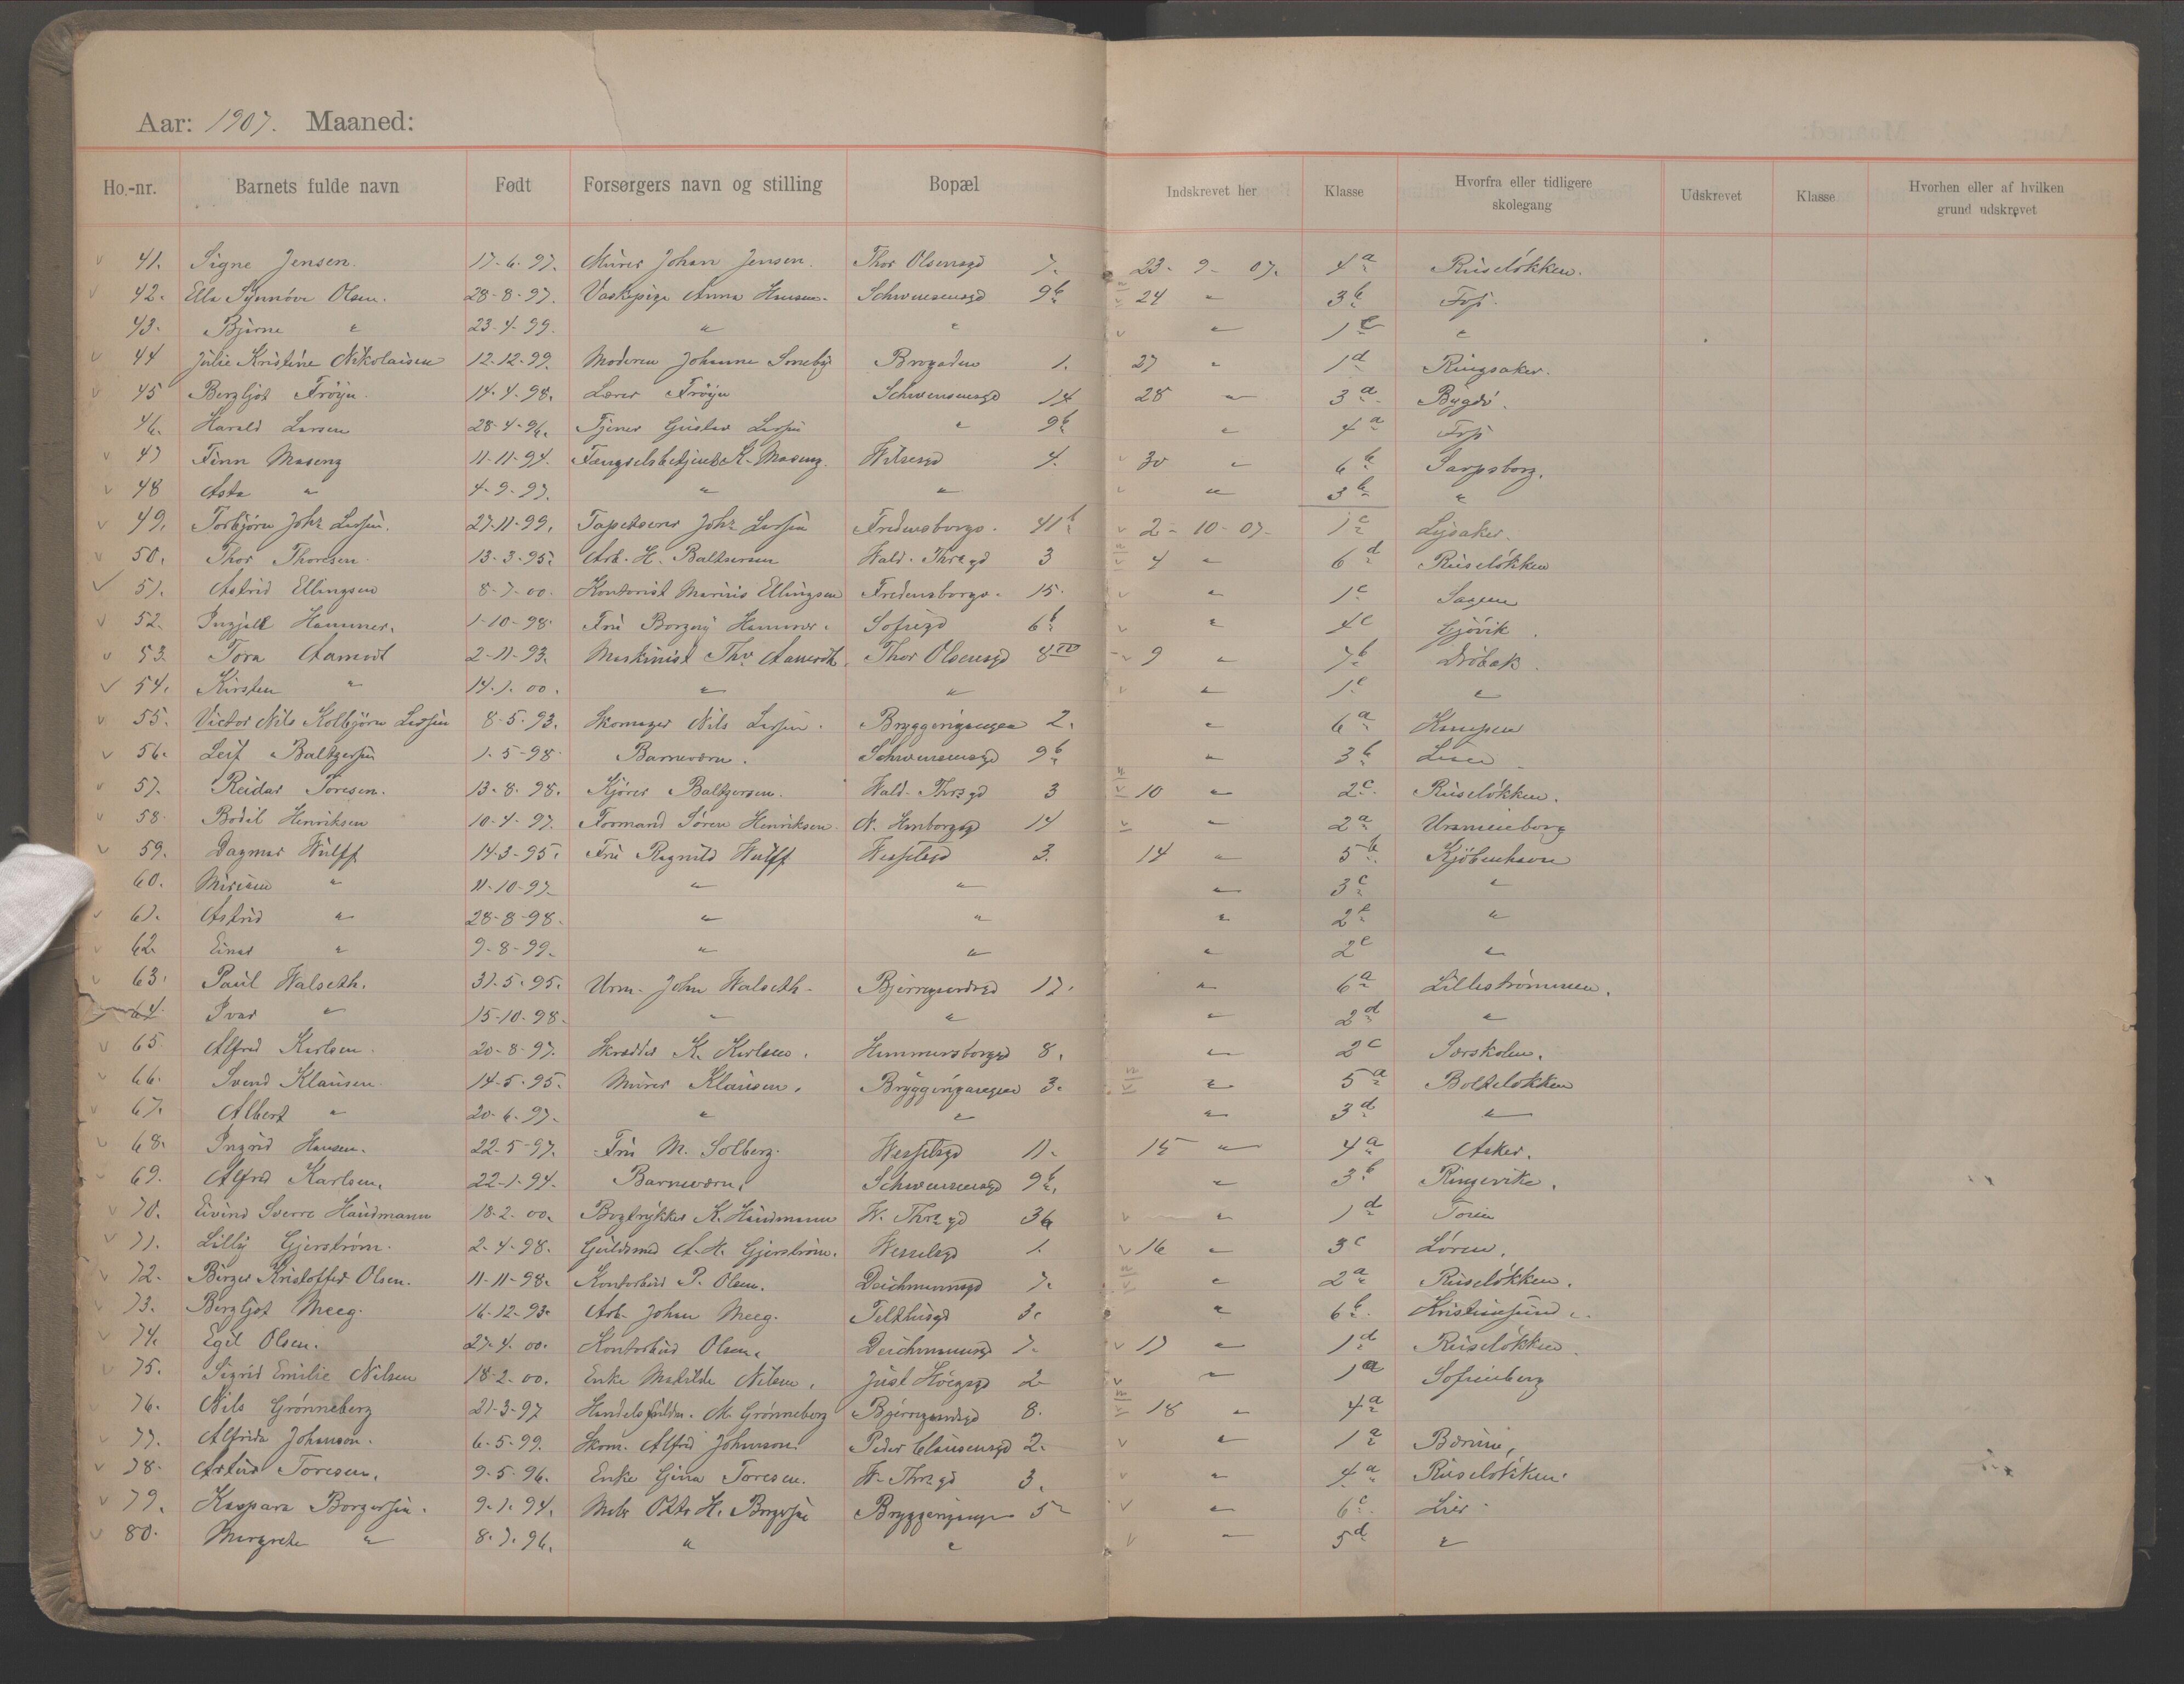 Aar: 1907. Maaned:
Ho.-nr. Barnets fulde navn Født Forsørgers navn og stilling Bopæl Indskrevet her Klasse Hvorfra eller tidligere skolegang Udskrevet Klasse Hvorhen eller af hvilken grund udskrevet
41. Signe Jensen. 17-6-97. Murer Johan Jensen. Thor Olsensgd 7. 23-9-07. 4a Ruseløkken.
42. Ella Synnöve Olsen. 28-8-97. Vaskepige Anna Hansen. Schwensensgd 9b 24 " 3b
43. Bjarne " 23-4-99. " " " "
44 Julie Kristine Nikolaisen 12-12-99. Moderen Johanne Brogaden 1. 27 " 1d Ringsaker.
45 Bergljot Fröyn. 14-4-98. Lærer Fröyn Schwensensgd 14 28 " 3a Bygdö.
46. Harald Larsen 28-4-96. Tjener Gustav Larsen " 9b " 4a
47 Finn Maseng 11-11-94. Fængselsbetjent K. Maseng. Wilsesgd 4. 30 " 6b Sarpsborg.
48 Asta " 4-9-97. " " " 3b "
49. Torbjörn Johs Larsen. 27-11-99. Tapetserer Johs Larsen Fredensborgv. 41b 2-10-07- 1c Lysaker.
50. Thor Thoresen. 13-3-95. Arb. H. Baltsersen Wald. Thrsgd 3 4 " 6d Ruseløkken
51. Astrid Ellingsen 8-7-00. Kontorist Marius Ellingsen Fredensborgv. 15. " 1c Sagene
52. Hammer. 1-10-98. Fru Borgny Hammer. Sofiegd 6b " 4c Gjövik.
53. Tora Aamodt 2-11-93. Maskinist Thv Aamodt. Thor Olsensgd 8IV 9 " 7b Dröbak.
54. Kirsten " 14-1-00. " " " "
55. Victor Nils Kolbjörn Larsen 8-5-93. Skomager Nils Larsen. Bryggerigangen 2. " 6a Kampen
56. Leif Baltzersen 1-5-98. Barneværn. Schwensensgd 9b " 3b
57. Reidar Toresen. 13-8-98. Kjörer Baltzersen. Wald. Thrsgd 3 10 " 2c Ruseløkken.
58. Bodil Henriksen 10-4-97. Formand Sören Henriksen. 14 " 2a Uranienborg
59. Dagmar Wulff 14-3-95. Fru Ragnild Wulff Wesselsgd 3. 14 " 5b Kjöbenhavn
60. Miriam " 11-10-97. " " " 3c "
61. Astrid " 28-8-98. " " " "
62. Einar " 9-8-99. " " " "
63. Paul Walseth. 31-5-95. Urm. John Walseth. Bjerregaardsgd 17. " 6a Lilleströmmen.
64. Ivar " 15-10-98. " " " 2d "
65. Alfred Karlsen. 20-8-97. Skrædder K. Karlsen. Hammersborggd 8. " 2c Særskolen.
66. Svend Klausen. 14-5-95. Murer Klausen. Bryggerigangen 3. " 5a Bolteløkken
67. Albert " 20-6-97. " " " 3d "
68. Ingrid Hansen. 22-5-97. Fru M. Solberg. Wesselsgd 11. 15 " 4a Asker.
69. Alfred Karlsen. 22-1-94. Barneværn. Schwensensgd 9b. " 3b
70. Eivind Sverre Haudmann 18-2-00. Bogtrykker K. Haudmann W. Thrsgd 36 " 1d
71. Lilly Gjerström. 2-4-98. Guldsmed A. H. Gjerström. Wesselsgd 1. 16 " 3c
72. Birger Kristoffer Olsen. 11-11-98. Kontorbud P. Olsen. Deichmannsgd 7. " 2a Ruseløkken.
73. Bergljot Meeg. 16-12-93. Arb. Johan Meeg. Telthusgd 3. " 6b Kristiansund.
74. Egil Olsen. 27-4-00. Kontorbud Olsen. Deichmannsgd 7. 17 " 1d Ruseløkken.
75. Sigrid Emilie Nilsen 18-2-00. Enke Mathilde Nilsen. Just Höegsgd 2 " 1a Sofienberg
76. Nils Grönneberg 21-3-97 M. Grönneberg Bjerregaardsgd 8. 18 " 4a
77. Alfrida Johnson. 6-5-99. Skom. Alfred Johnson. Peder Clausensgd 2. " 1a Bærum.
78. Artur Toresen. 9-5-96. Enke Gina Toresen. W. Thrsgd 3. " 4a Ruseløkken.
79. Kaspara Borgersen. 9-1-94. H. Borgersen Bryggerigangen 5 " 6c Lier.
80. Margrete " 8-7-96. " " " 5d "